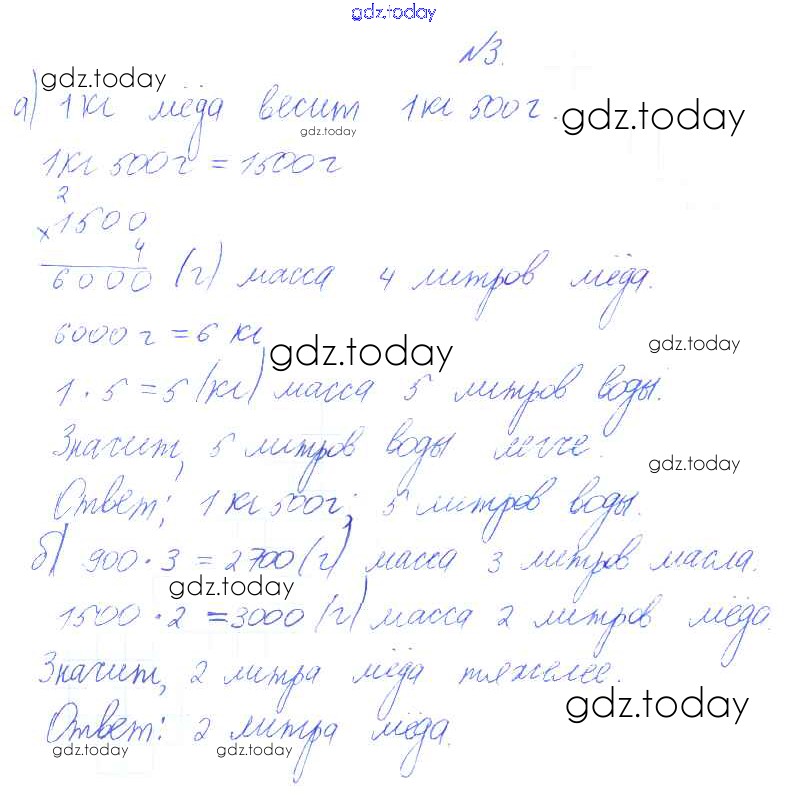 gdz.today
№3.
gdz.today
а) 1 кг мёда весит 1 кг 500 г.
gdz.today
gdz.today
1 кг 500 г = 1500 г
2
× 1500
4
6000 (г) масса 4 литров мёда.
6000 г = 6 кг
gdz.today
gdz.today
1 · 5 = 5 (кг) масса 5 литров воды.
Значит, 5 литров воды легче.
gdz.today
Ответ: 1 кг 500 г; 5 литров воды.
б) 900 · 3 = 2700 (г) масса 3 литров масла.
gdz.today
1500 · 2 = 3000 (г) масса 2 литров мёда.
Значит, 2 литра мёда тяжелее.
gdz.today
Ответ: 2 литра мёда.
gdz.today gdz.today